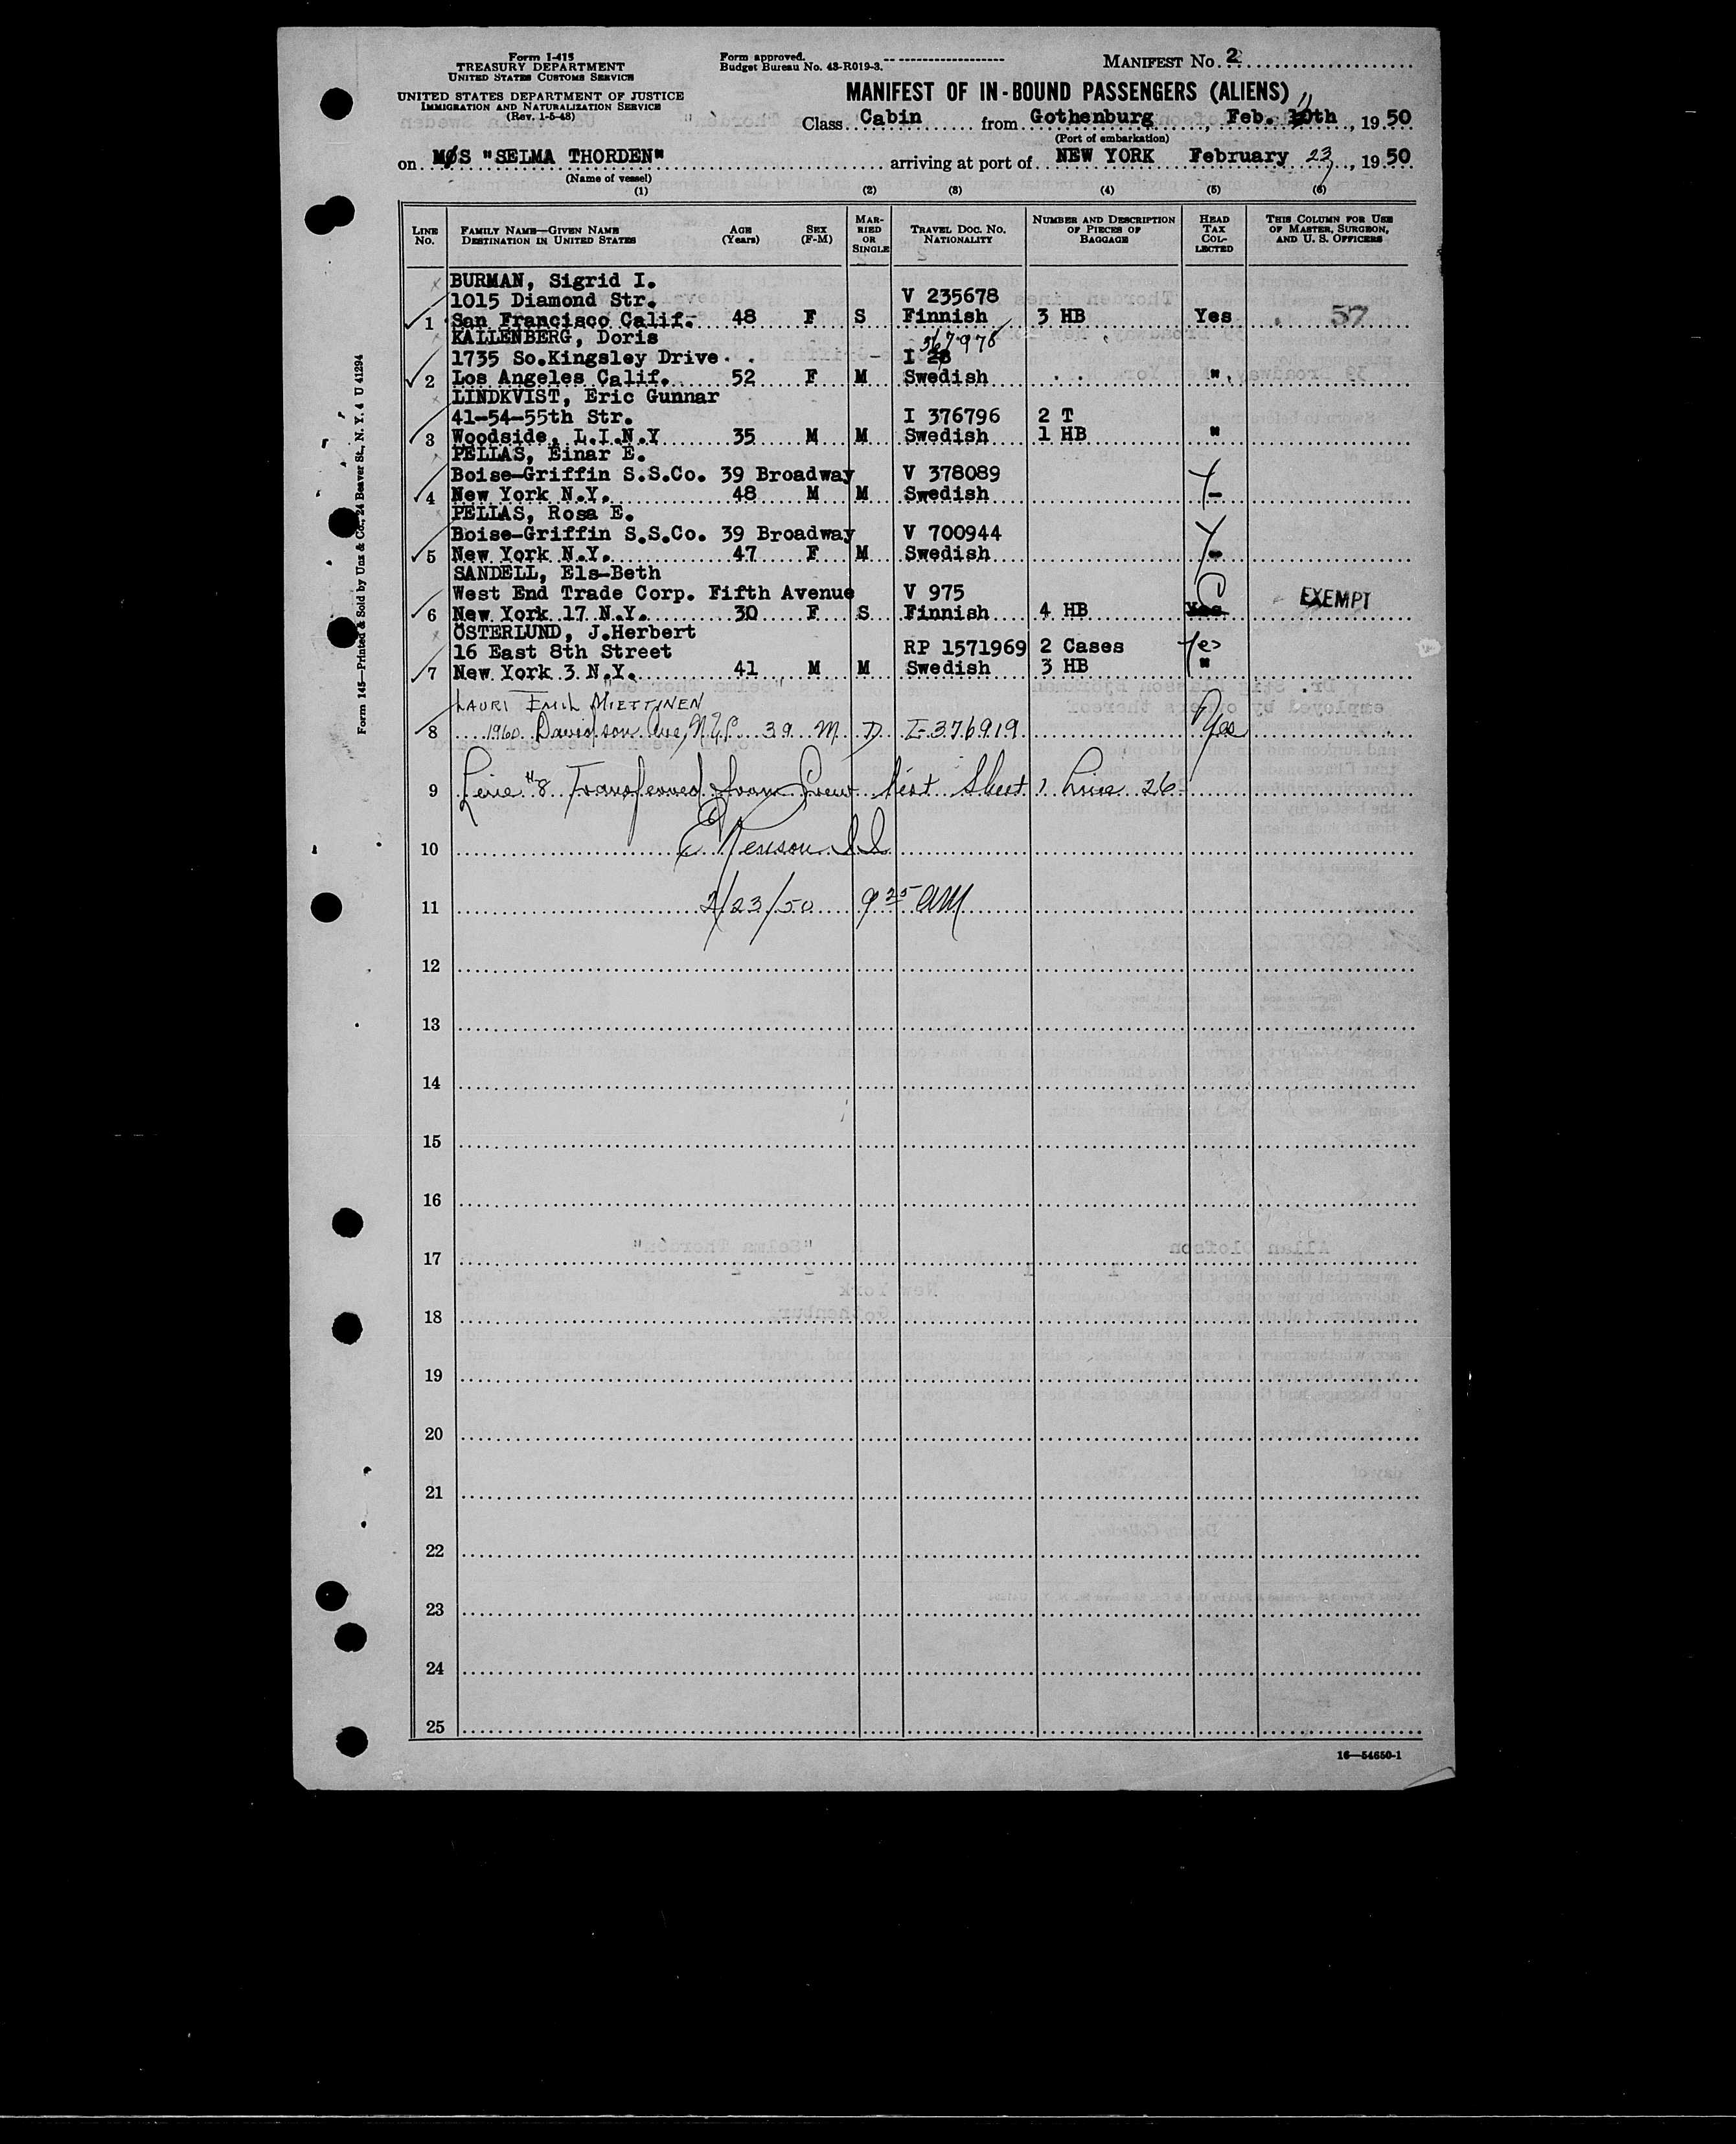 Form I-415
TREASURY DEPARTMENT
UNITED STATES CUSTOMS SERVICE
UNITED STATES DEPARTMENT OF JUSTICE
IMMIGRATION AND NATURALIZATION SERVICE
(Rev. 1-5-48)
Form approved.
Budget Bureau No. 43-R019-3.
MANIFEST No. 2
MANIFEST OF IN-BOUND PASSENGERS (ALIENS)
Class Cabin from Gothenburg, Feb. 11th, 1950
(Port of embarkation)
on MS "SELMA THORDEN" arriving at port of NEW YORK February 23, 1950
(Name of vessel)
(1) (2) (3) (4) (5) (6)
LINE No. FAMILY NAME—GIVEN NAME DESTINATION IN UNITED STATES AGE (Years) SEX (F-M) MARRIED OR SINGLE TRAVEL DOC. NO. NATIONALITY NUMBER AND DESCRIPTION OF PIECES OF BAGGAGE HEAD TAX COLLECTED THIS COLUMN FOR USE OF MASTER, SURGEON, AND U. S. OFFICERS
BURMAN, Sigrid I.
1015 Diamond Str. V 235678
1 San Francisco Calif. 48 F S Finnish 3 HB Yes 57
KALLENBERG, Doris 367978
1735 So.Kingsley Drive I 28
2 Los Angeles Calif. 52 F M Swedish "
LINDKVIST, Eric Gunnar
41-54-55th Str. I 376796 2 T
3 Woodside, L.I.N.Y 35 M M Swedish 1 HB "
PELLAS, Einar E.
Boise-Griffin S.S.Co. 39 Broadway V 378089
4 New York N.Y. 48 M M Swedish -
PELLAS, Rosa E.
Boise-Griffin S.S.Co. 39 Broadway V 700944
5 New York N.Y. 47 F M Swedish -
SANDELL, Els-Beth
West End Trade Corp. Fifth Avenue V 975 EXEMPT
6 New York 17 N.Y. 30 F S Finnish 4 HB Yes
ÖSTERLUND, J.Herbert
16 East 8th Street RP 1571969 2 Cases Yes
7 New York 3 N.Y. 41 M M Swedish 3 HB "
LAURI EMIL MIETTINEN
8 1960 Davidson Ave, N.Y.C. 39 M D I-376919 Yes
9 Line #8 Transferred from Crew List Sheet 1 Line 26
10
11 2/23/50 9 25 AM
12
13
14
15
16
17
18
19
20
21
22
23
24
25
16—54650-1
Form 145—Printed & Sold by Unz & Co., 24 Beaver St., N. Y. 4 U 41294